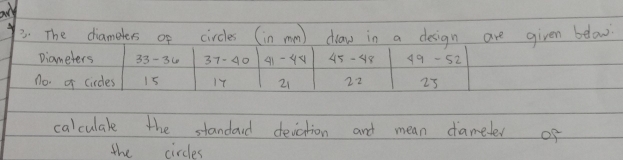 3. The diameters of circles (in mm) draw in a design are given below.
Diameters 33-36 37-40 41-44 45-48 49-52
No. of circles 15 17 21 22 25
calculate the standard deviation and mean diameter of
the circles